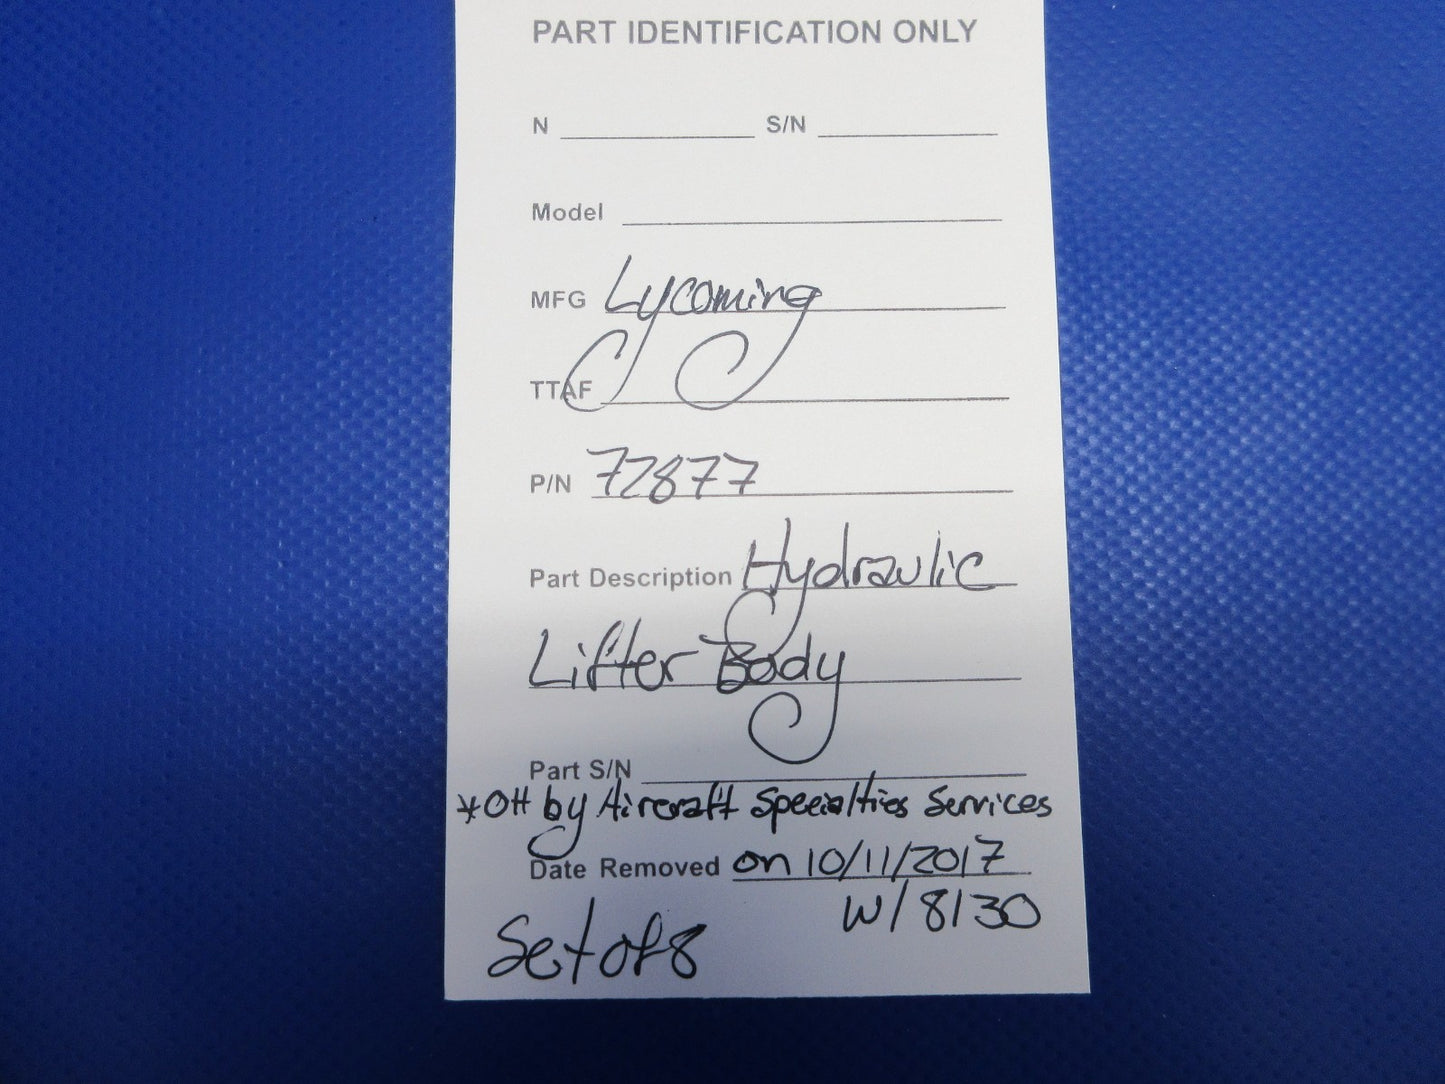 PART IDENTIFICATION ONLY
N S/N
Model
MFG Lycoming
TTAF
P/N 72877
Part Description Hydraulic
Lifter Body
Part S/N
*OH by Aircraft Specialties Services
Date Removed on 10/11/2017
W/8130
Set of 8